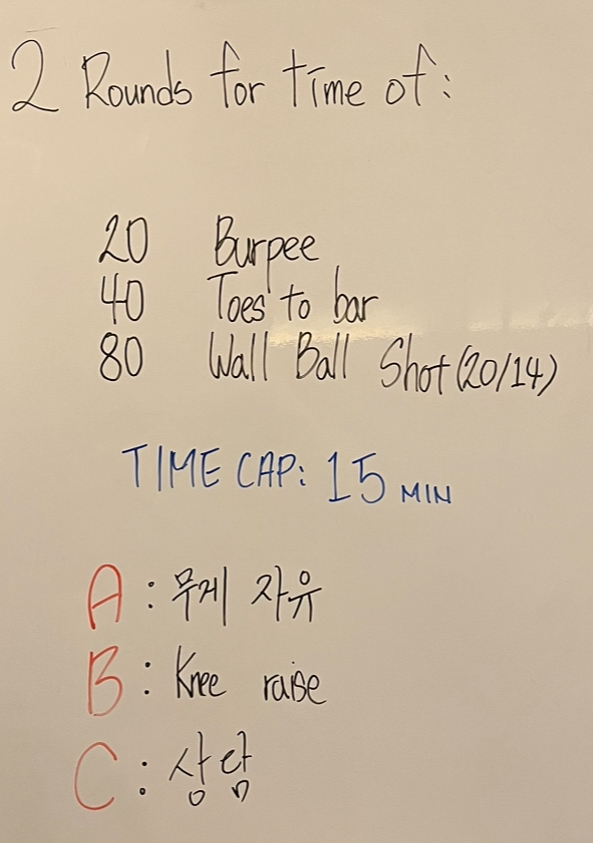 2 Rounds for time of:
20 Burpee
40 Toes to bar
80 Wall Ball Shot (20/14)
TIME CAP: 15 MIN
A : 무게 자유
B : Knee raise
C : 상담